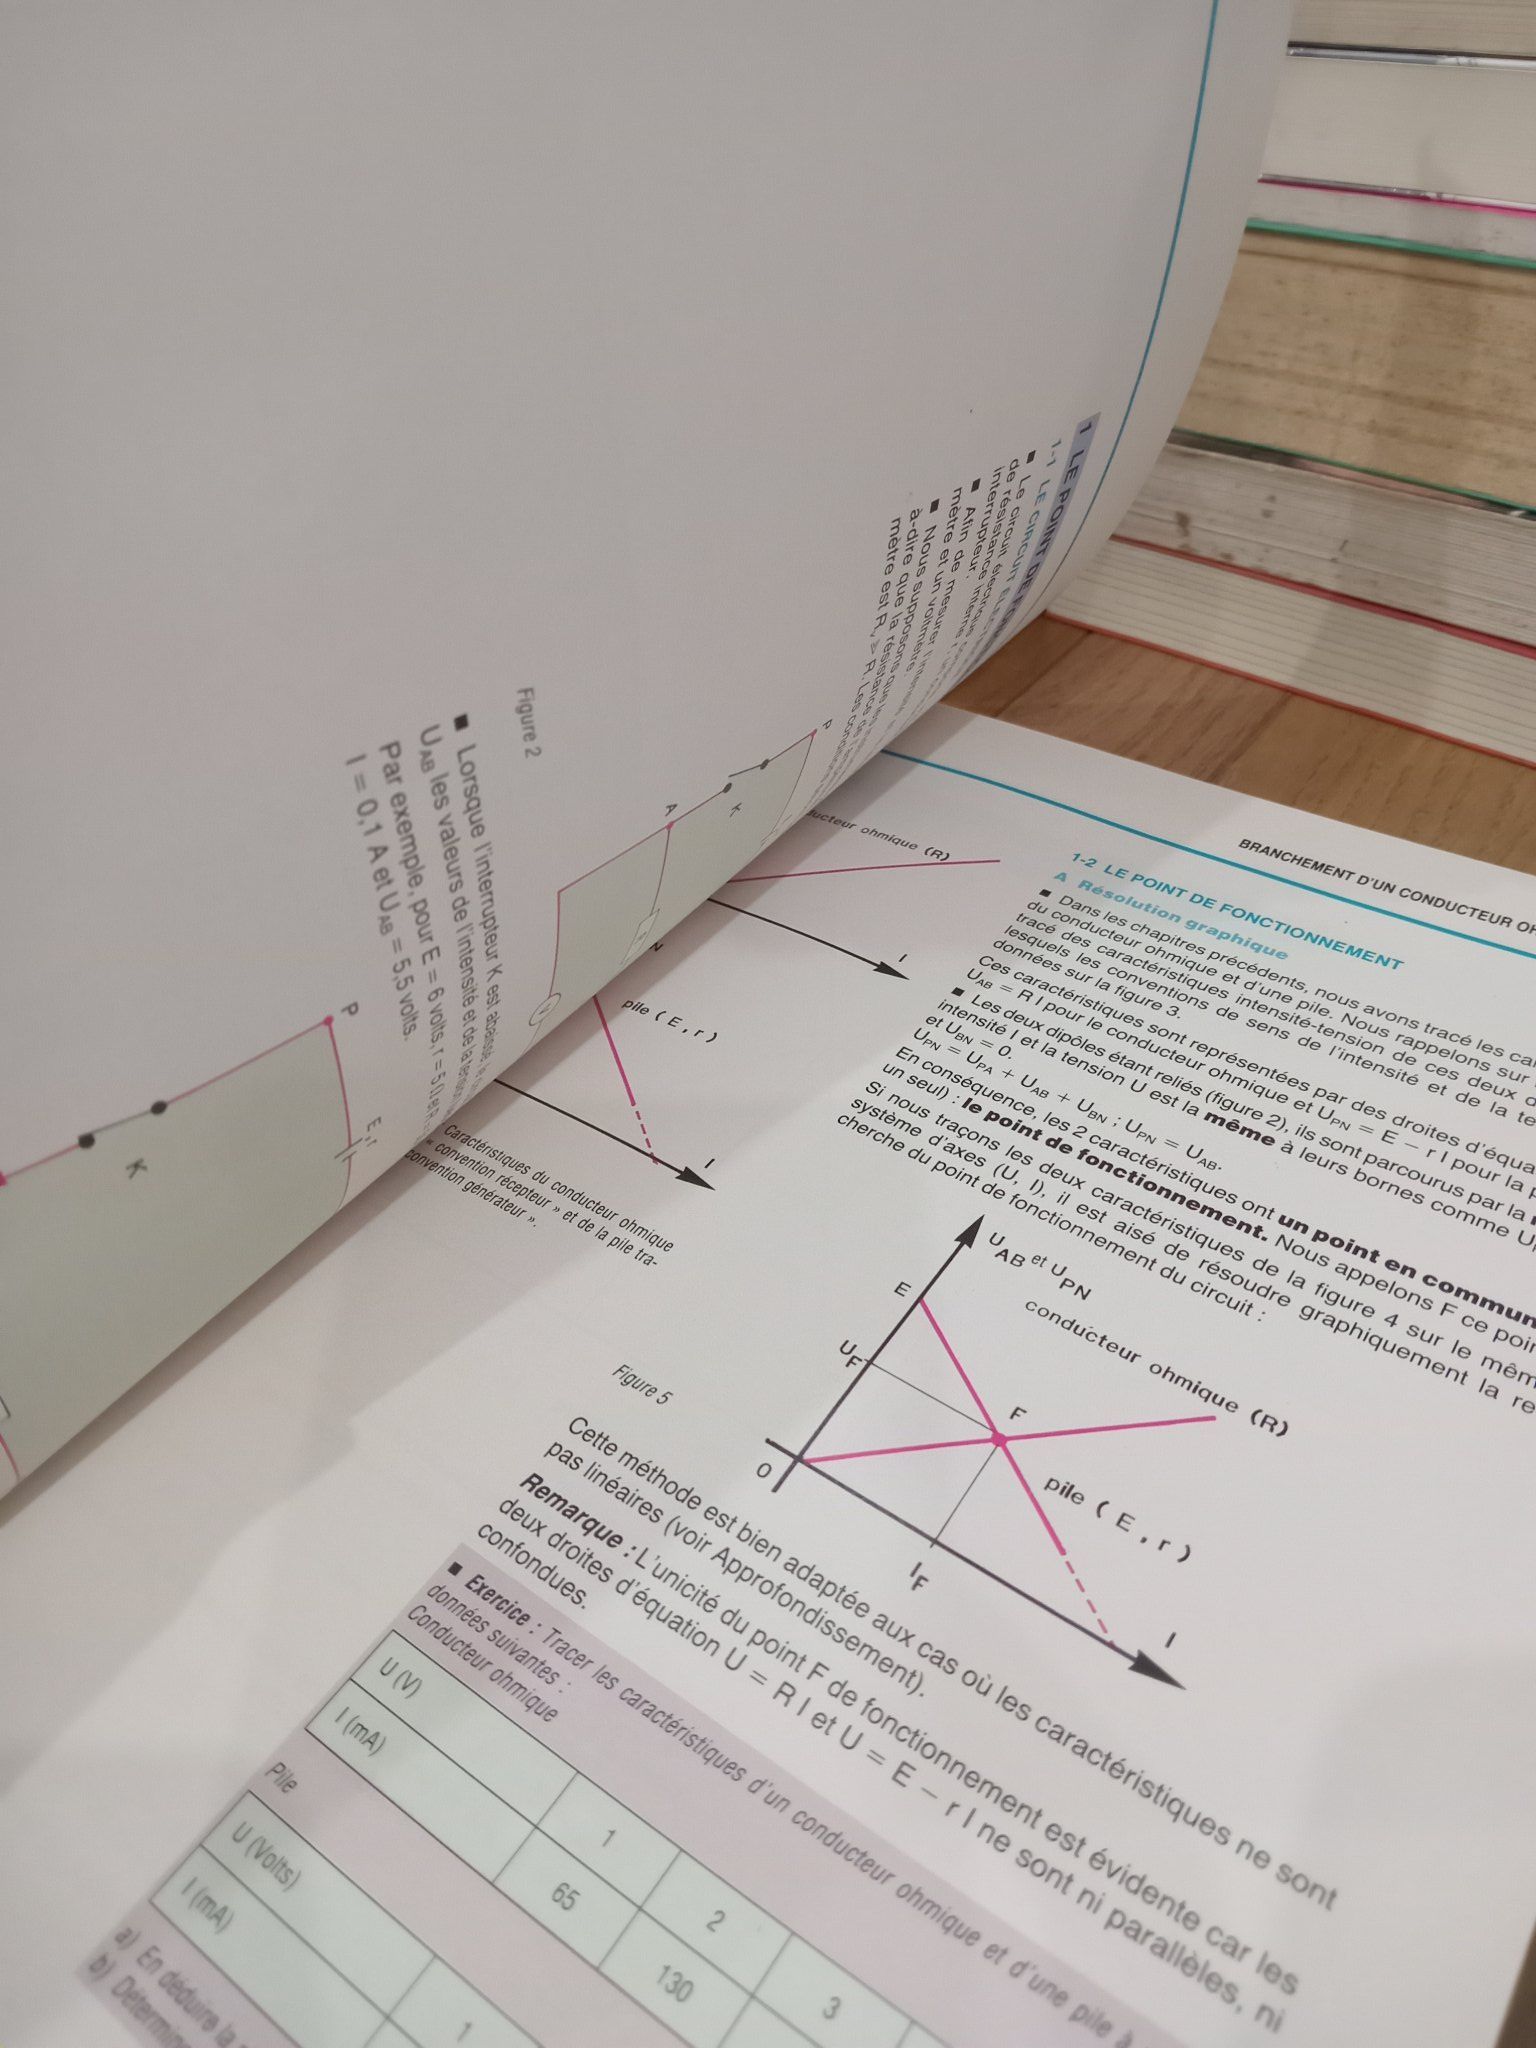 1 LE POINT DE
1-1 LE CIRCUIT
■ Le circuit
de résistance
interrupteur.
■ Afin de mesurer l'intensité
mètre et un voltmètre.
■ Nous supposons que
à-dire que la résistance de
mètre est Rv ≫ R. Les
P
K
A
N
Figure 2
■ Lorsque l'interrupteur K est abaissé,
UAB les valeurs de l'intensité et de la
Par exemple, pour E = 6 volts, r = 5 Ω et
I = 0,1 A et UAB = 5,5 volts.
P
E, r
K
ohmique (R)
I
pile (E, r)
I
Caractéristiques du conducteur ohmique
« convention récepteur » et de la pile tra-
convention générateur ».
BRANCHEMENT D'UN CONDUCTEUR
1-2 LE POINT DE FONCTIONNEMENT
A Résolution graphique
■ Dans les chapitres précédents, nous avons tracé les
du conducteur ohmique et d'une pile. Nous rappelons sur
tracé des caractéristiques intensité-tension de ces deux
lesquels les conventions de sens de l'intensité et de la
données sur la figure 3.
Ces caractéristiques sont représentées par des droites
UAB = R I pour le conducteur ohmique et UPN = E – r I pour la
■ Les deux dipôles étant reliés (figure 2), ils sont parcourus par la
intensité I et la tension U est la même à leurs bornes comme
et UBN = 0.
UPN = UPA + UAB + UBN ; UPN = UAB.
En conséquence, les 2 caractéristiques ont un point en commun
un seul) : le point de fonctionnement. Nous appelons F ce
Si nous traçons les deux caractéristiques de la figure 4 sur le
système d'axes (U, I), il est aisé de résoudre graphiquement la
cherche du point de fonctionnement du circuit :
UAB et UPN
E
conducteur ohmique (R)
UF
F
O
pile (E, r)
IF
I
Figure 5
Cette méthode est bien adaptée aux cas où les caractéristiques ne sont
pas linéaires (voir Approfondissement).
Remarque : L'unicité du point F de fonctionnement est évidente car les
deux droites d'équation U = R I et U = E – r I ne sont ni parallèles, ni
confondues.
■ Exercice : Tracer les caractéristiques d'un conducteur ohmique et d'une pile à
données suivantes :
Conducteur ohmique
U (V) 1 2 3
I (mA) 65 130
Pile
U (Volts) 1
I (mA)
a) En déduire la
b)